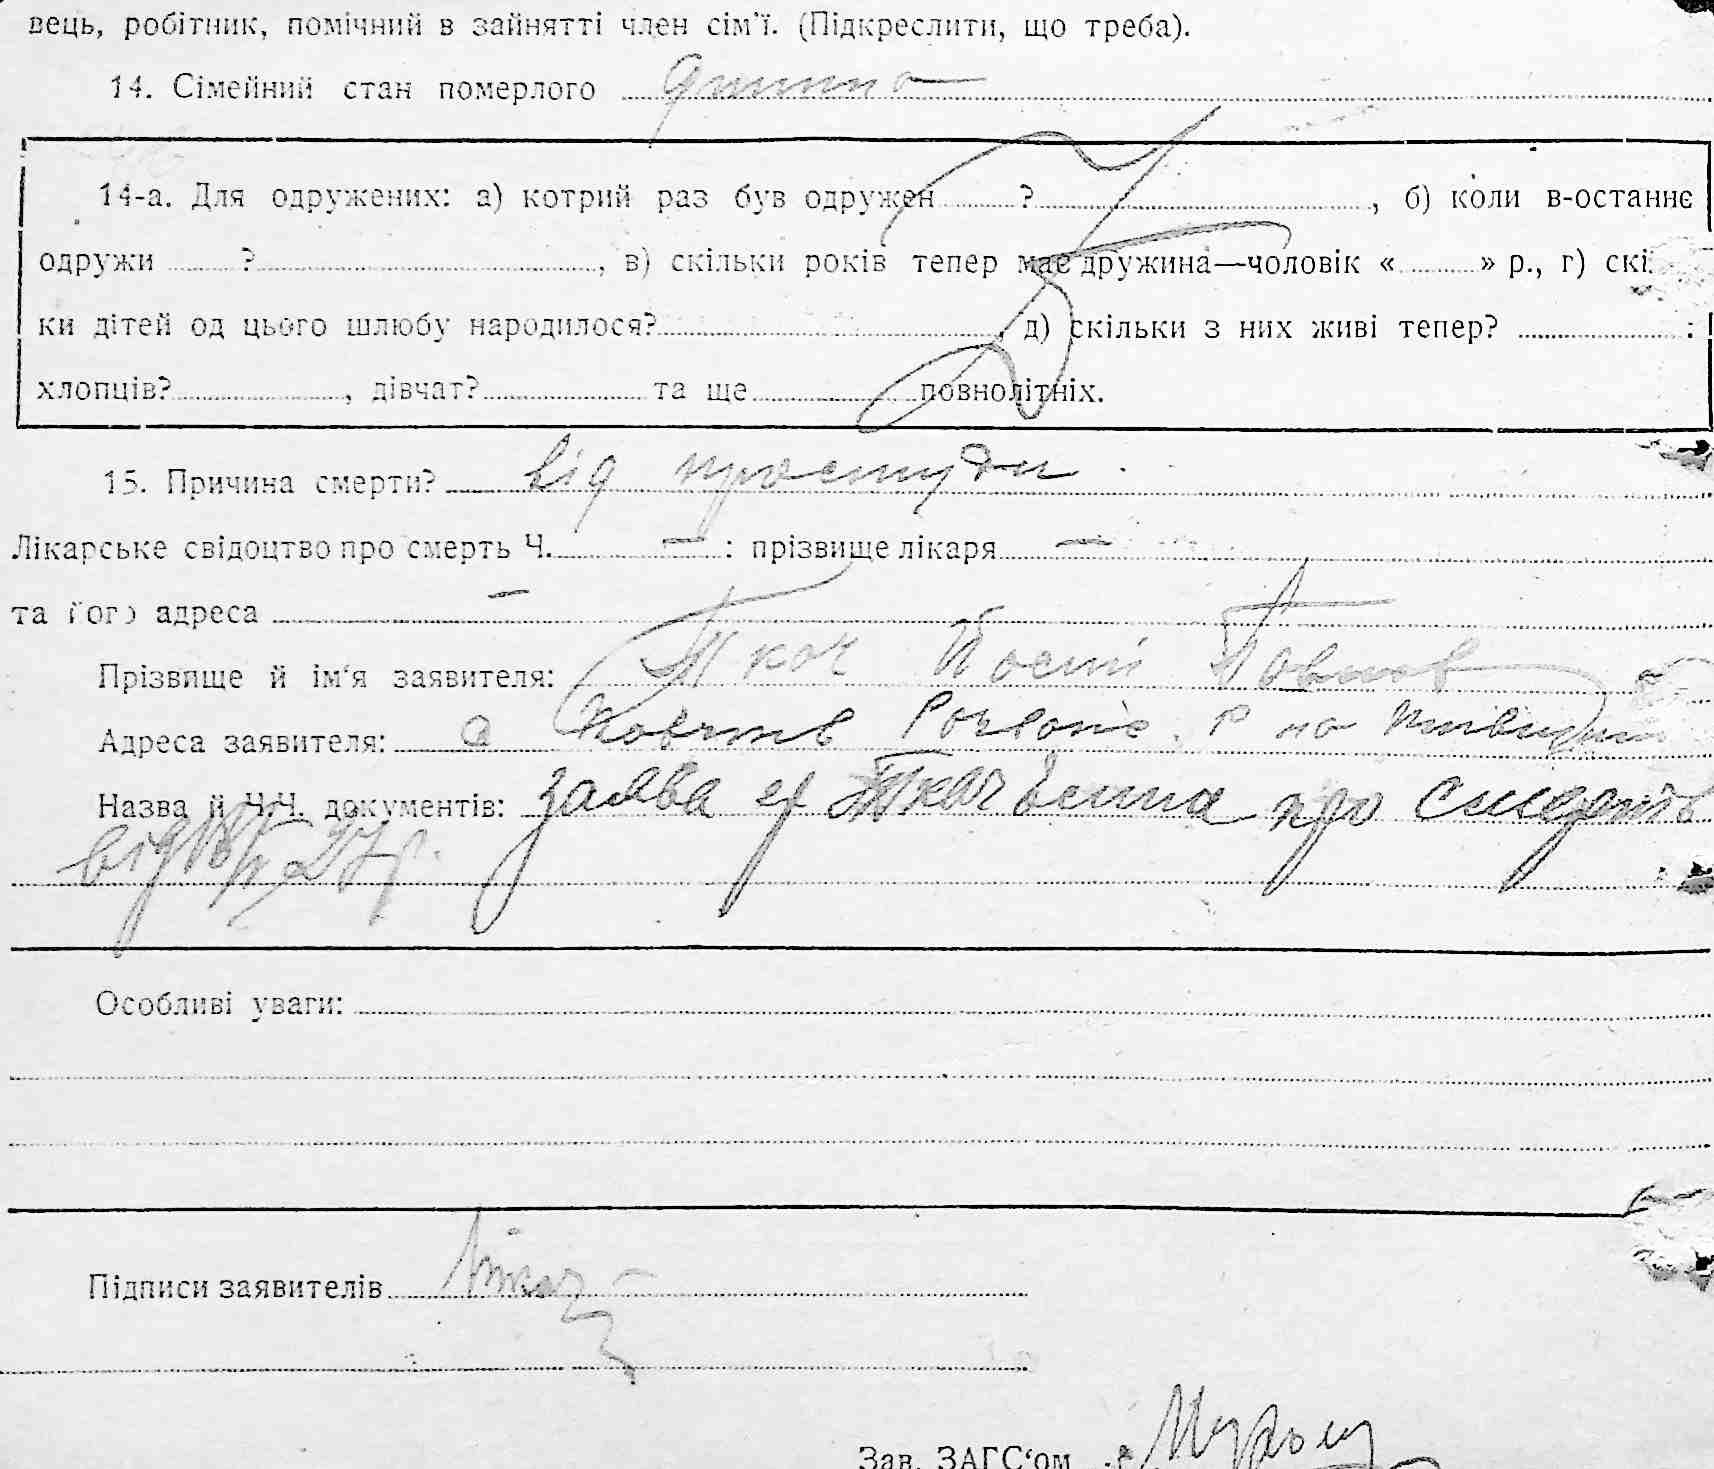 вець, робітник, помічний в зайнятті член сім'ї. (Підкреслити, що треба).
14. Сімейний стан померлого дитина
14-а. Для одружених: а) котрий раз був одружен ? , б) коли в-останнє
одружи ? , в) скільки років тепер має дружина—чоловік « » р., г) скі
ки дітей од цього шлюбу народилося? , д) скільки з них живі тепер? :
хлопців? , дівчат? та ще повнолітніх.
15. Причина смерти? від простуди
Лікарське свідоцтво про смерть Ч. — : прізвище лікаря —
та його адреса —
Прізвище й ім'я заявителя: Ткач
Адреса заявителя: с
Назва й Ч.Ч. документів: заява гр Ткач про смерть
від 27р.
Особливі уваги:
Підписи заявителів Ткач
Зав. ЗАГС'ом